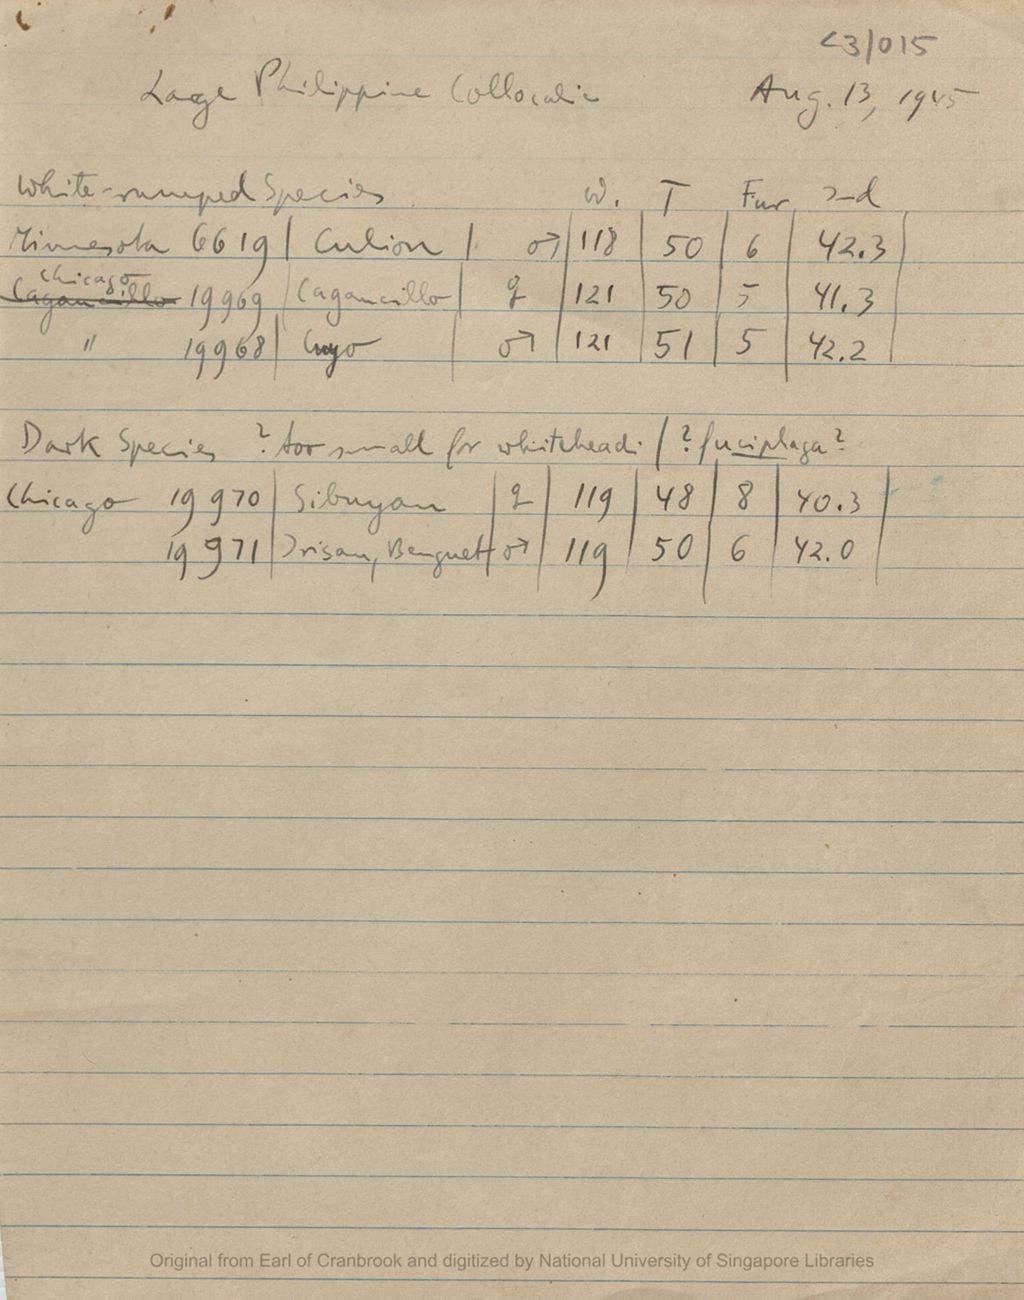 C3/015
Large Philippine Collocalia Aug. 13, 1945
White-rumped Species W. T Fur 2nd
Minnesota 6619 | Culion | ♂ | 118 | 50 | 6 | 42.3
Chicago
Cagancillo 19969 | Cagancillo | ♀ | 121 | 50 | 5 | 41.3
" 19968 | Cuyo | ♂ | 121 | 51 | 5 | 42.2
Dark Species ? too small for whiteheadi (? fuciphaga?
Chicago 19970 | Sibuyan | ♀ | 119 | 48 | 8 | 40.3
19971 | Irisan, Benguet | ♂ | 119 | 50 | 6 | 42.0
Original from Earl of Cranbrook and digitized by National University of Singapore Libraries